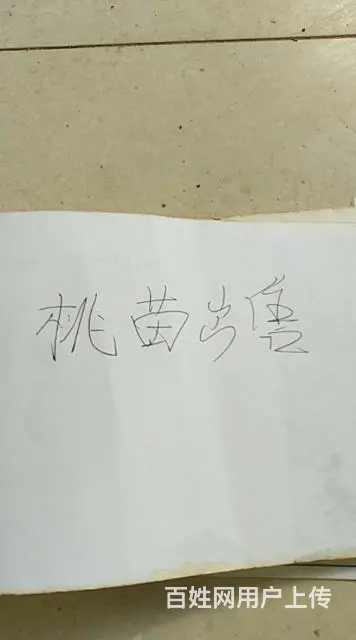 桃苗出售
百姓网用户上传